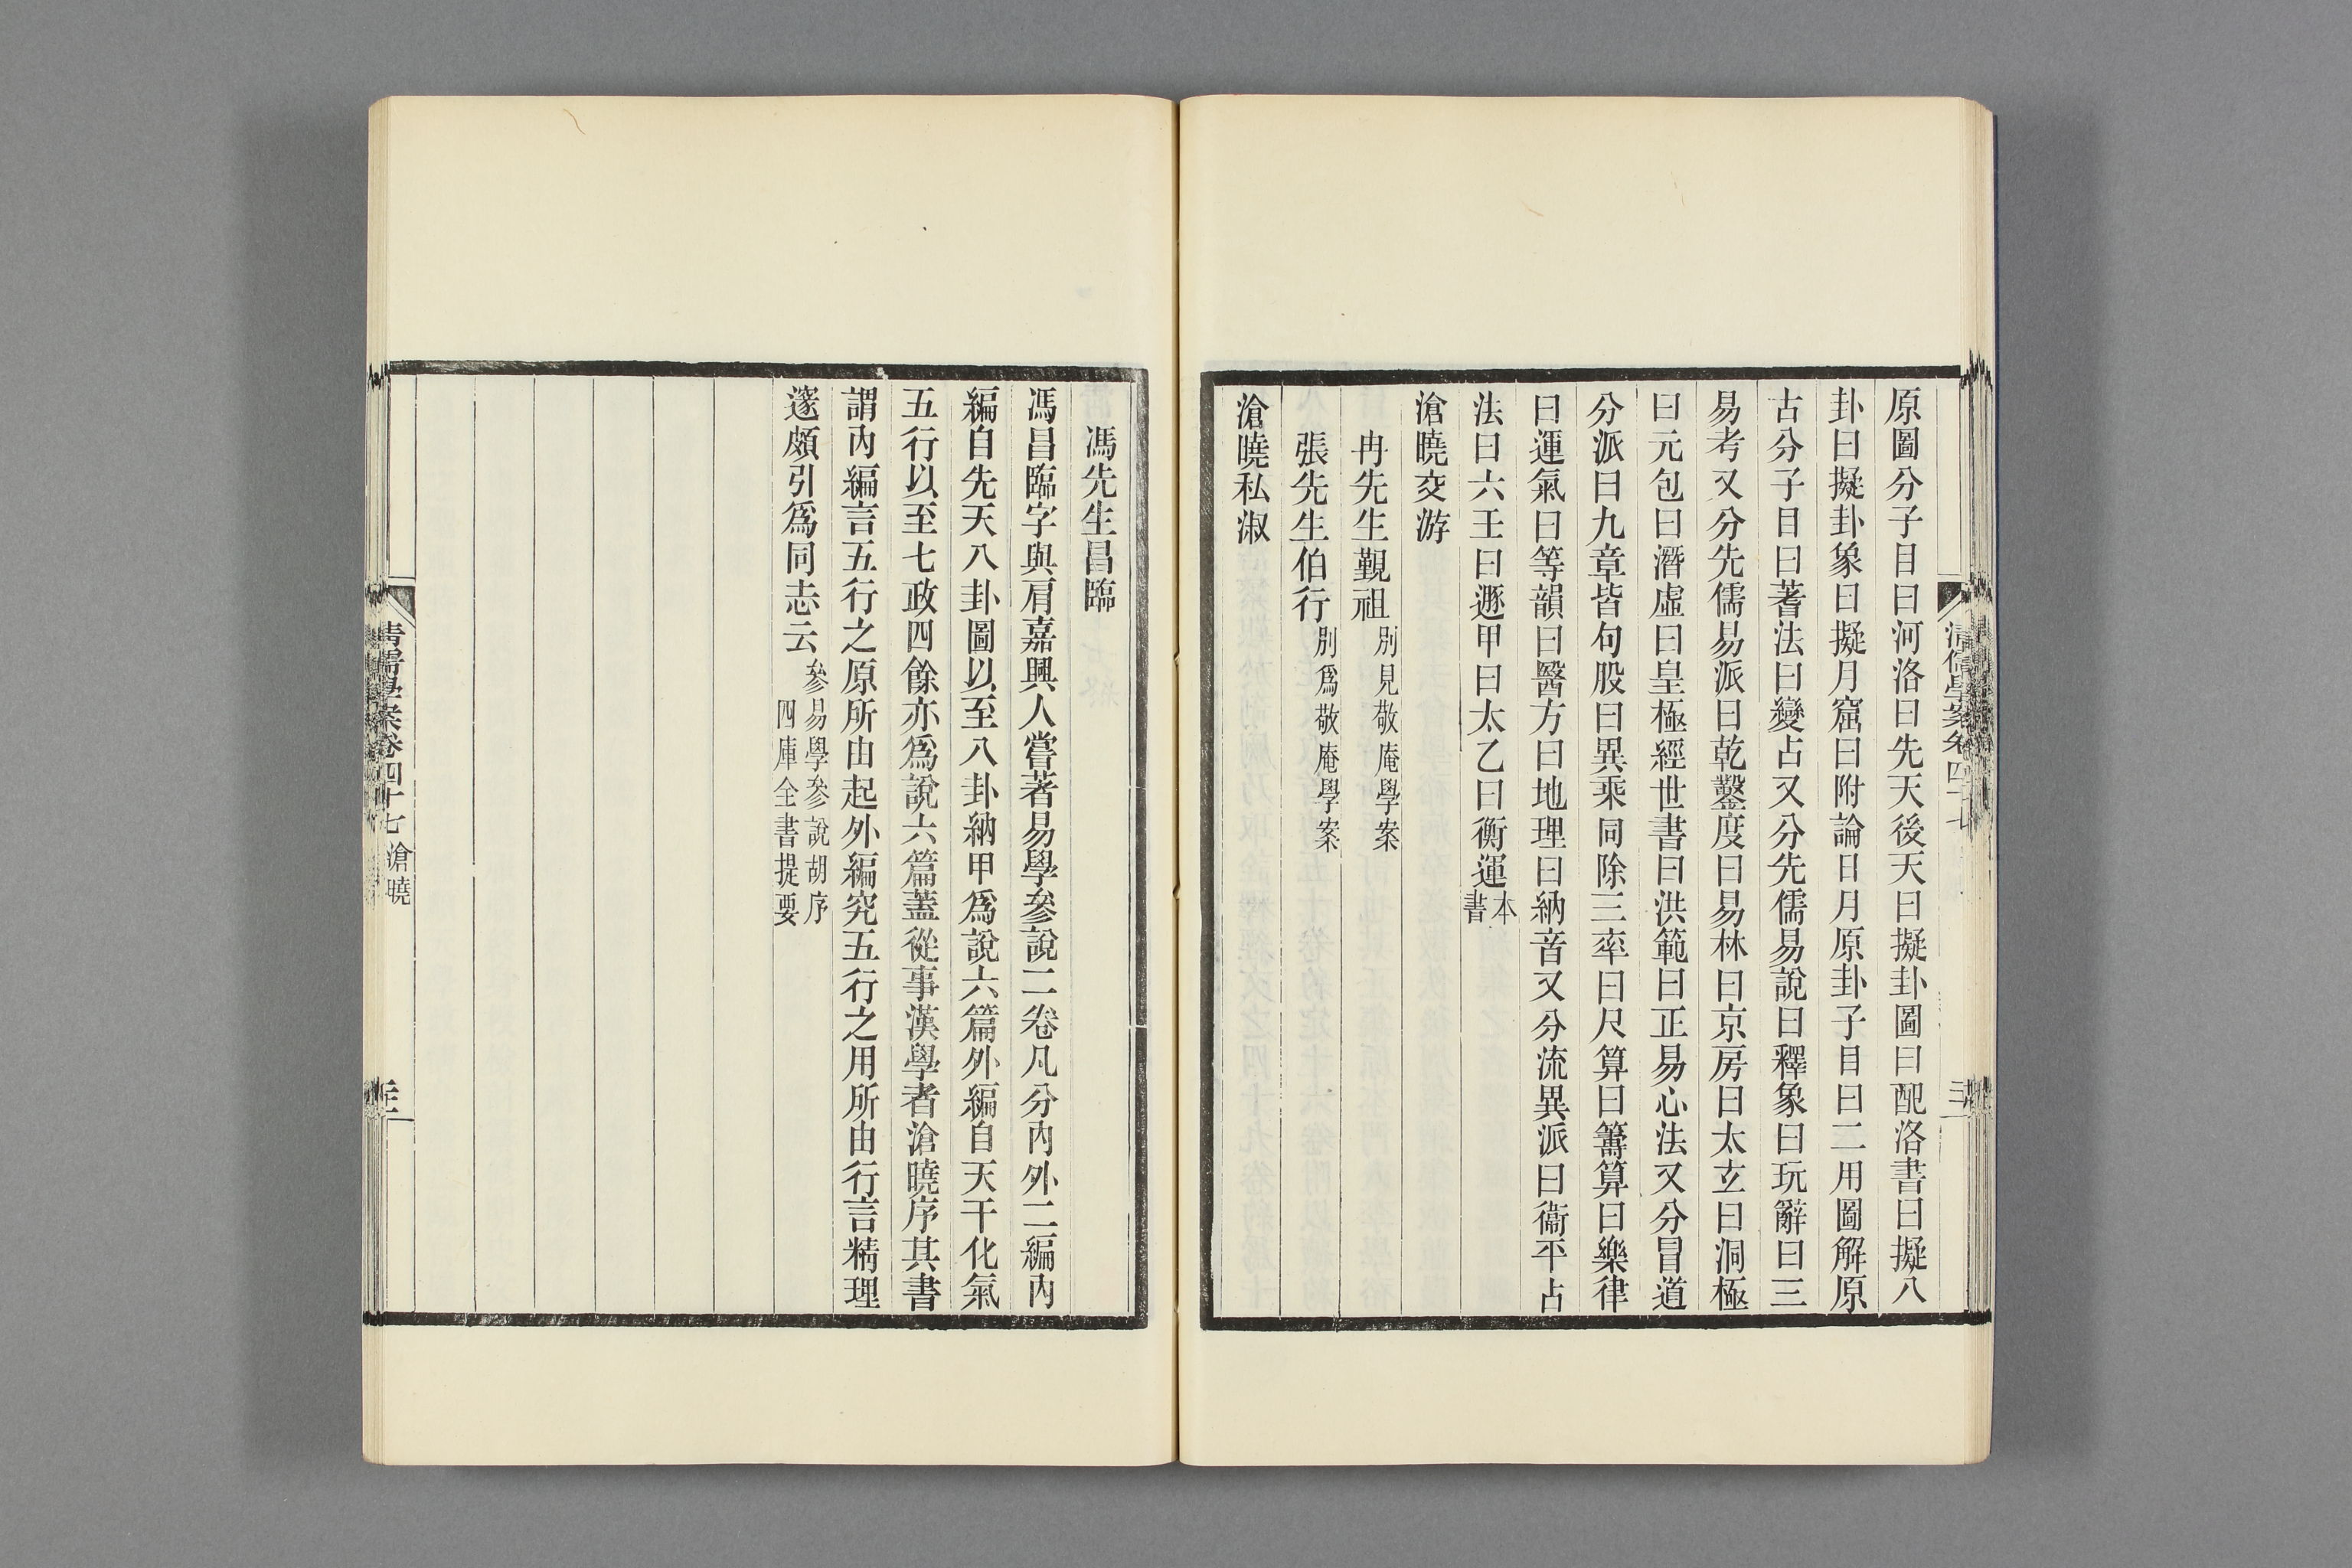 原圖分子目曰河洛曰先天後天曰擬卦圖曰配洛書曰擬八
卦曰擬卦象曰擬月窟曰附論日月原卦子目曰二用圖解原
古分子目曰蓍法曰變占又分先儒易說曰釋象曰玩辭曰三
易考又分先儒易派曰乾鑿度曰易林曰京房曰太玄曰洞極
曰元包曰潛虛曰皇極經世書曰洪範曰正易心法又分冒道
分派曰九章皆句股曰異乘同除三率曰尺算曰籌算曰樂律
曰運氣曰等韻曰醫方曰地理曰納音又分流異派曰衞平占
法曰六壬曰遯甲曰太乙曰衡運本書
滄曉交游
冉先生覲祖別見敬庵學案
張先生伯行別爲敬庵學案
滄曉私淑
馮先生昌臨
馮昌臨字與肩嘉興人嘗著易學參說二卷凡分內外二編內
編自先天八卦圖以至八卦納甲爲說六篇外編自天干化氣
五行以至七政四餘亦爲說六篇蓋從事漢學者滄曉序其書
謂內編言五行之原所由起外編究五行之用所由行言精理
邃頗引爲同志云參易學參說胡序
四庫全書提要
清儒學案卷四十七 滄曉